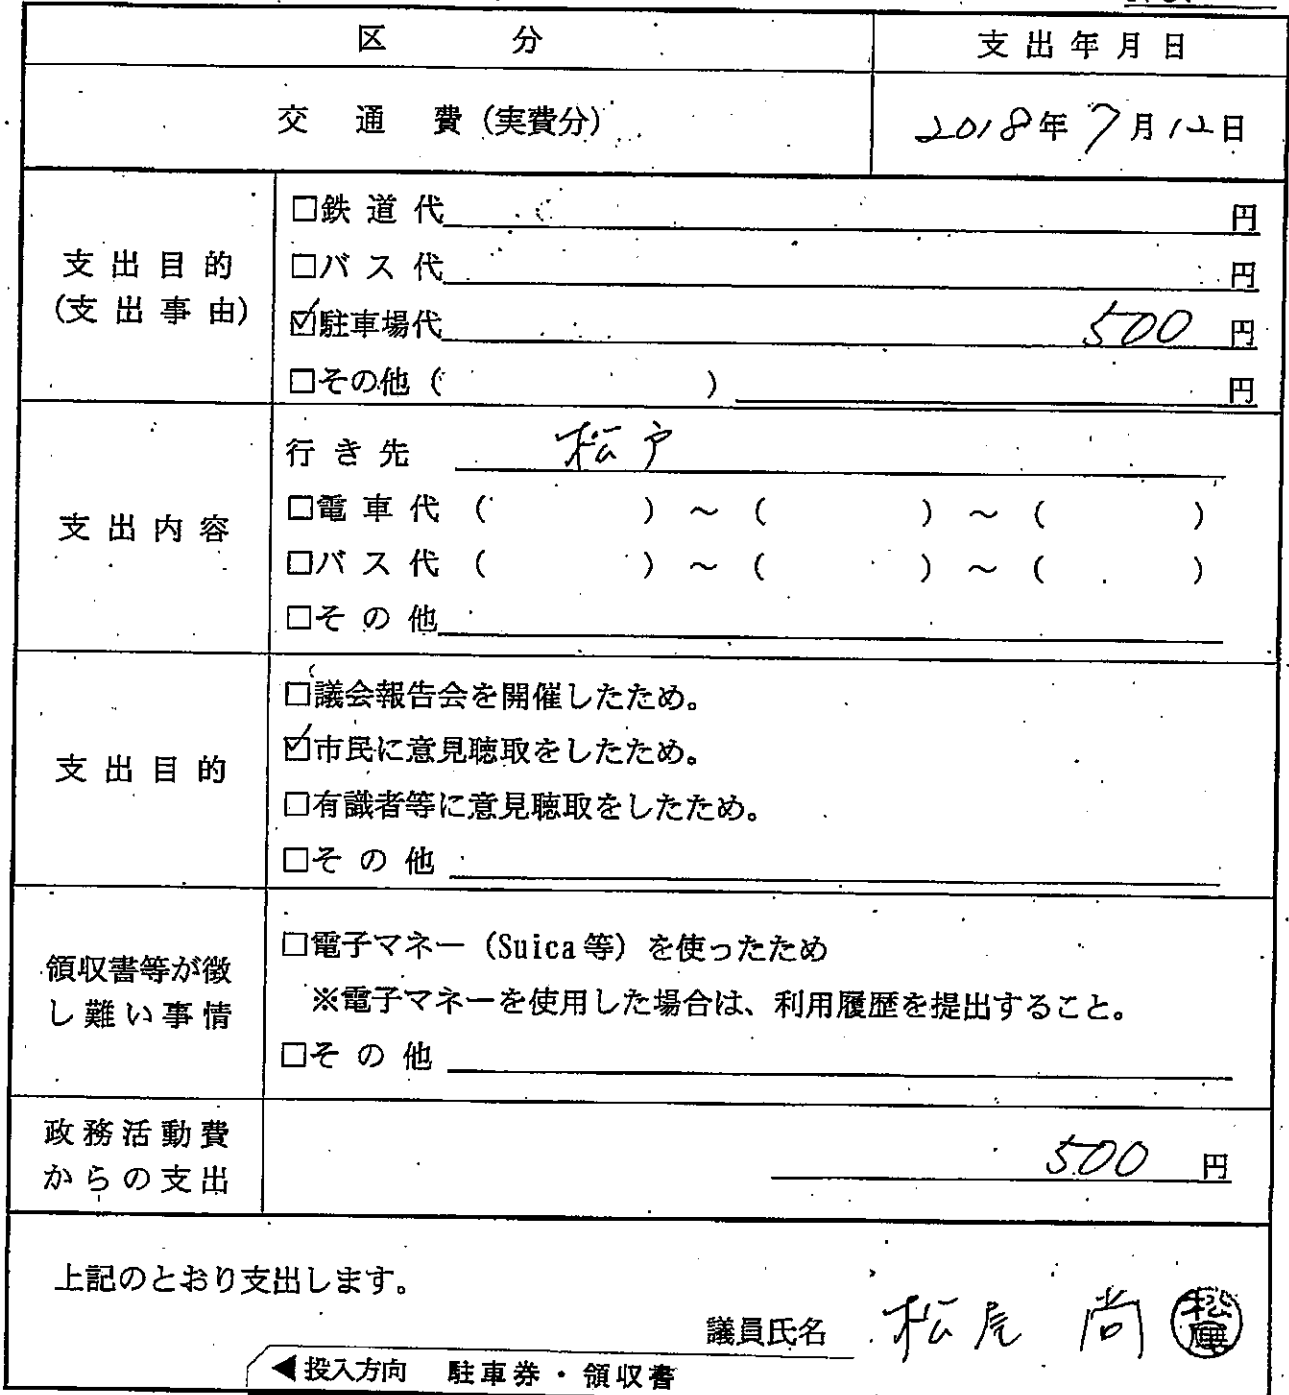 区 分 支出年月日
交 通 費 (実費分) 2018年7月12日
支出目的
(支出事由)
□鉄道代 円
□バス代 円
☑駐車場代 500 円
□その他 ( ) 円
支出内容
行き先 松戸
□電車代 ( ) ～ ( ) ～ ( )
□バス代 ( ) ～ ( ) ～ ( )
□その他
支出目的
□議会報告会を開催したため。
☑市民に意見聴取をしたため。
□有識者等に意見聴取をしたため。
□その他
領収書等が徴
し難い事情
□電子マネー (Suica等) を使ったため
※電子マネーを使用した場合は、利用履歴を提出すること。
□その他
政務活動費
からの支出
500 円
上記のとおり支出します。
議員氏名 松尾 尚
◀投入方向 駐車券・領収書